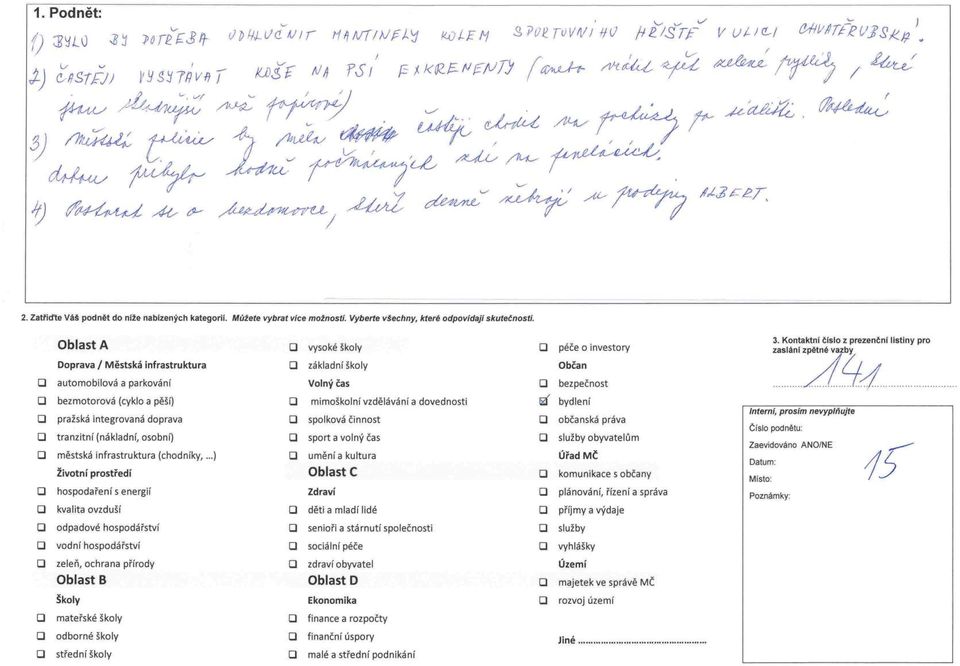 1. Podnět:
1) BYLO BY POTŘEBA ODHLUČNIT MANTINELY KOLEM SPORTOVNÍHO HŘIŠTĚ V ULICI CHVATĚRUBSKÁ.
2) ČASTĚJI VYSYPÁVAT KOŠE NA PSÍ EXKREMENTY (anebo vrátit zpět zelené pytlíky, které
jsou skladnější než papírové)
3) Městská policie by měla častěji chodit na pochůzky po sídlišti. Poslední
dobou přibylo hodně počmáraných zdí na panelácích.
4) Postarat se o bezdomovce, kteří denně žebrají u prodejny ALBERT.
2. Zatřiďte Váš podnět do níže nabízených kategorií. Můžete vybrat více možností. Vyberte všechny, které odpovídají skutečnosti.
Oblast A
Doprava / Městská infrastruktura
automobilová a parkování
bezmotorová (cyklo a pěší)
pražská integrovaná doprava
tranzitní (nákladní, osobní)
městská infrastruktura (chodníky, ...)
Životní prostředí
hospodaření s energií
kvalita ovzduší
odpadové hospodářství
vodní hospodářství
zeleň, ochrana přírody
Oblast B
Školy
mateřské školy
odborné školy
střední školy
vysoké školy
základní školy
Volný čas
mimoškolní vzdělávání a dovednosti
spolková činnost
sport a volný čas
umění a kultura
Oblast C
Zdraví
děti a mladí lidé
senioři a stárnutí společnosti
sociální péče
zdraví obyvatel
Oblast D
Ekonomika
finance a rozpočty
finanční úspory
malé a střední podnikání
péče o investory
Občan
bezpečnost
bydlení
občanská práva
služby obyvatelům
Úřad MČ
komunikace s občany
plánování, řízení a správa
příjmy a výdaje
služby
vyhlášky
Území
majetek ve správě MČ
rozvoj území
Jiné ..................................................
3. Kontaktní číslo z prezenční listiny pro
zaslání zpětné vazby
141
Interní, prosím nevyplňujte
Číslo podnětu:
Zaevidováno ANO/NE
Datum:
Místo:
15
Poznámky: